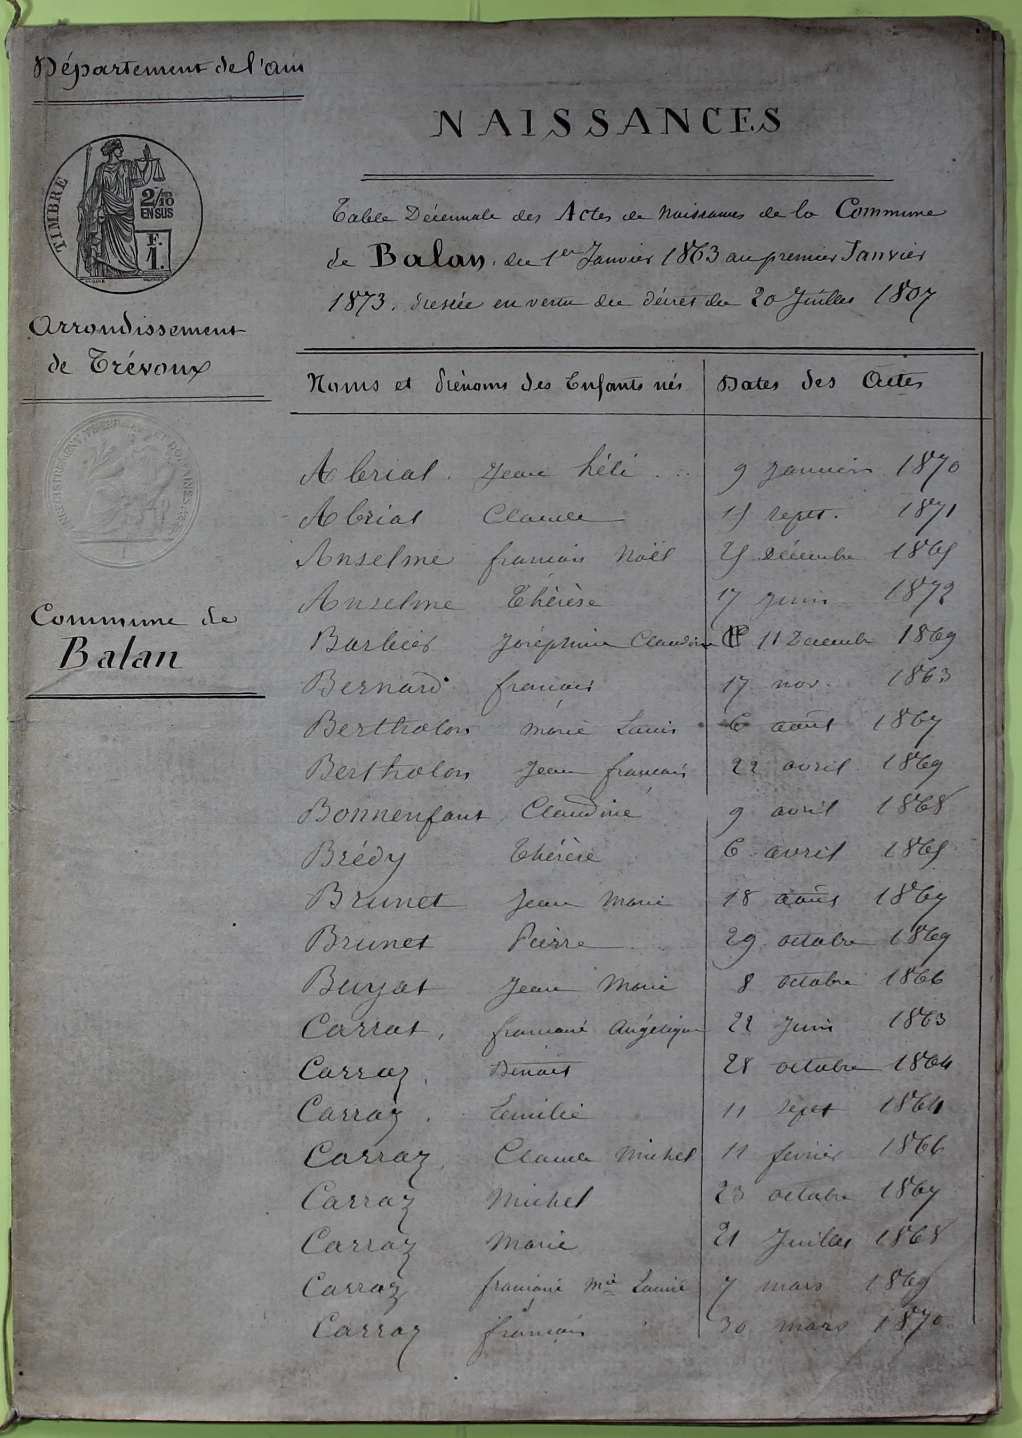 Département de l'ain
NAISSANCES
TIMBRE
2/10
EN SUS
F.
1.
Table Décennale des Actes de Naissances de la Commune
de Balan. du 1er Janvier 1863 au premier Janvier
1873. dressée en vertu du décret du 20 Juillet 1807
Arrondissement
de Trévoux
Noms et Prénoms des Enfants nés
Dates des Actes
Commune de
Balan
Abrial. Jean héli 9 Janvier 1870
Abrial Claude 15 sept. 1871
Anselme francois Noël 25 Décembre 1865
Anselme Thérèse 17 juin 1872
Barbier Joséphine Claudine 11 Decembre 1869
Bernard francois 17 nov. 1863
Bertholon marie Louis 6 août 1867
Bertholon Jean francois 22 avril 1869
Bonnenfant Claudine 9 avril 1868
Brédy Thérèse 6 avril 1865
Brunet Jean Marie 18 août 1867
Brunet Pierre 29 octobre 1869
Buyat Jean Marie 8 octobre 1866
Carrat, Angélique 22 Juin 1863
Carraz, Benoit 28 octobre 1864
Carraz. 11 sept 1864
Carraz, Claude Michel 11 février 1866
Carraz Michel 23 octobre 1867
Carraz Marie 21 Juillet 1868
Carraz Mie 7 mars 1869
Carraz francois 30 mars 1870